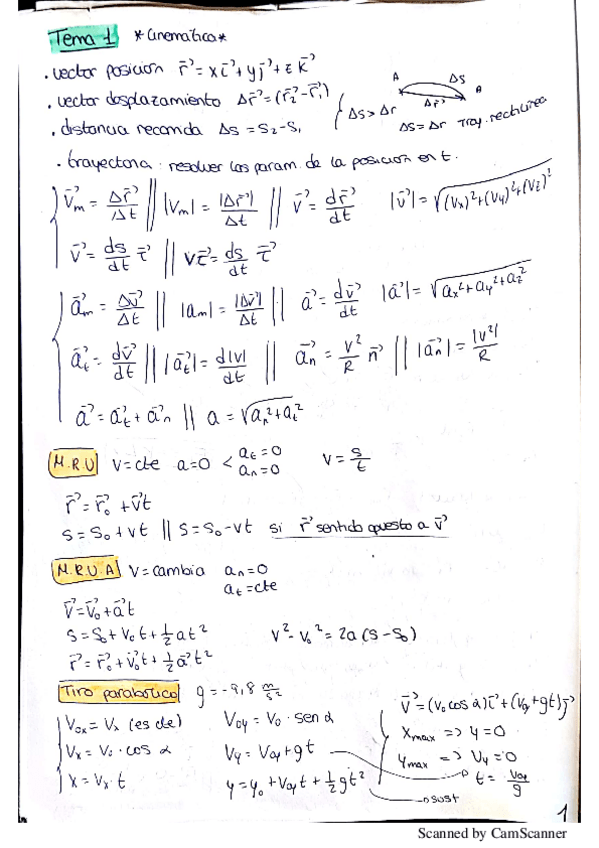 Tema 1 *Cinemática*
. vector posición r⃗ = x i⃗ + y j⃗ + z k⃗
. vector desplazamiento Δr⃗ = (r⃗₂ - r⃗₁) { Δs > Δr A Δs Δr⃗ B
. distancia recorrida Δs = s₂ - s₁ Δs = Δr Tray. rectilínea
. trayectoria : resolver los param. de la posición en t.
v⃗m = Δr⃗/Δt || |vm| = |Δr⃗|/Δt || v⃗ = dr⃗/dt |v⃗| = √((Vx)²+(Vy)²+(Vz)²)
v⃗ = ds/dt τ⃗ || vτ⃗ = ds/dt τ⃗
a⃗m = Δv⃗/Δt || |am| = |Δv⃗|/Δt || a⃗ = dv⃗/dt |a⃗| = √(ax²+ay²+az²)
a⃗t = dv⃗/dt || |a⃗t| = d|v|/dt || a⃗n = v²/R n⃗ || |a⃗n| = |v²|/R
a⃗ = a⃗t + a⃗n || a = √(an²+at²)
M.R.U v = cte a=0 < at = 0 an = 0 v = s/t
r⃗ = r⃗₀ + v⃗t
s = s₀ + vt || s = s₀ - vt si r⃗ sentido opuesto a v⃗
M.R.U.A v = cambia an = 0
at = cte
v⃗ = v⃗₀ + a⃗t
s = s₀ + v₀t + ½at² v² - v₀² = 2a (s - s₀)
r⃗ = r⃗₀ + v⃗₀t + ½a⃗t²
Tiro parabólico g = -9,8 m/s²
V₀x = Vx (es cte) V₀y = V₀ · sen α v⃗ = (v₀ cos α) i⃗ + (V₀y + gt) j⃗
Vx = V₀ · cos α Vy = V₀y + gt Xmax => y = 0
x = Vx · t y = y₀ + V₀y t + ½gt² Ymax => Vy = 0
t = V₀y/g
sust
1
Scanned by CamScanner